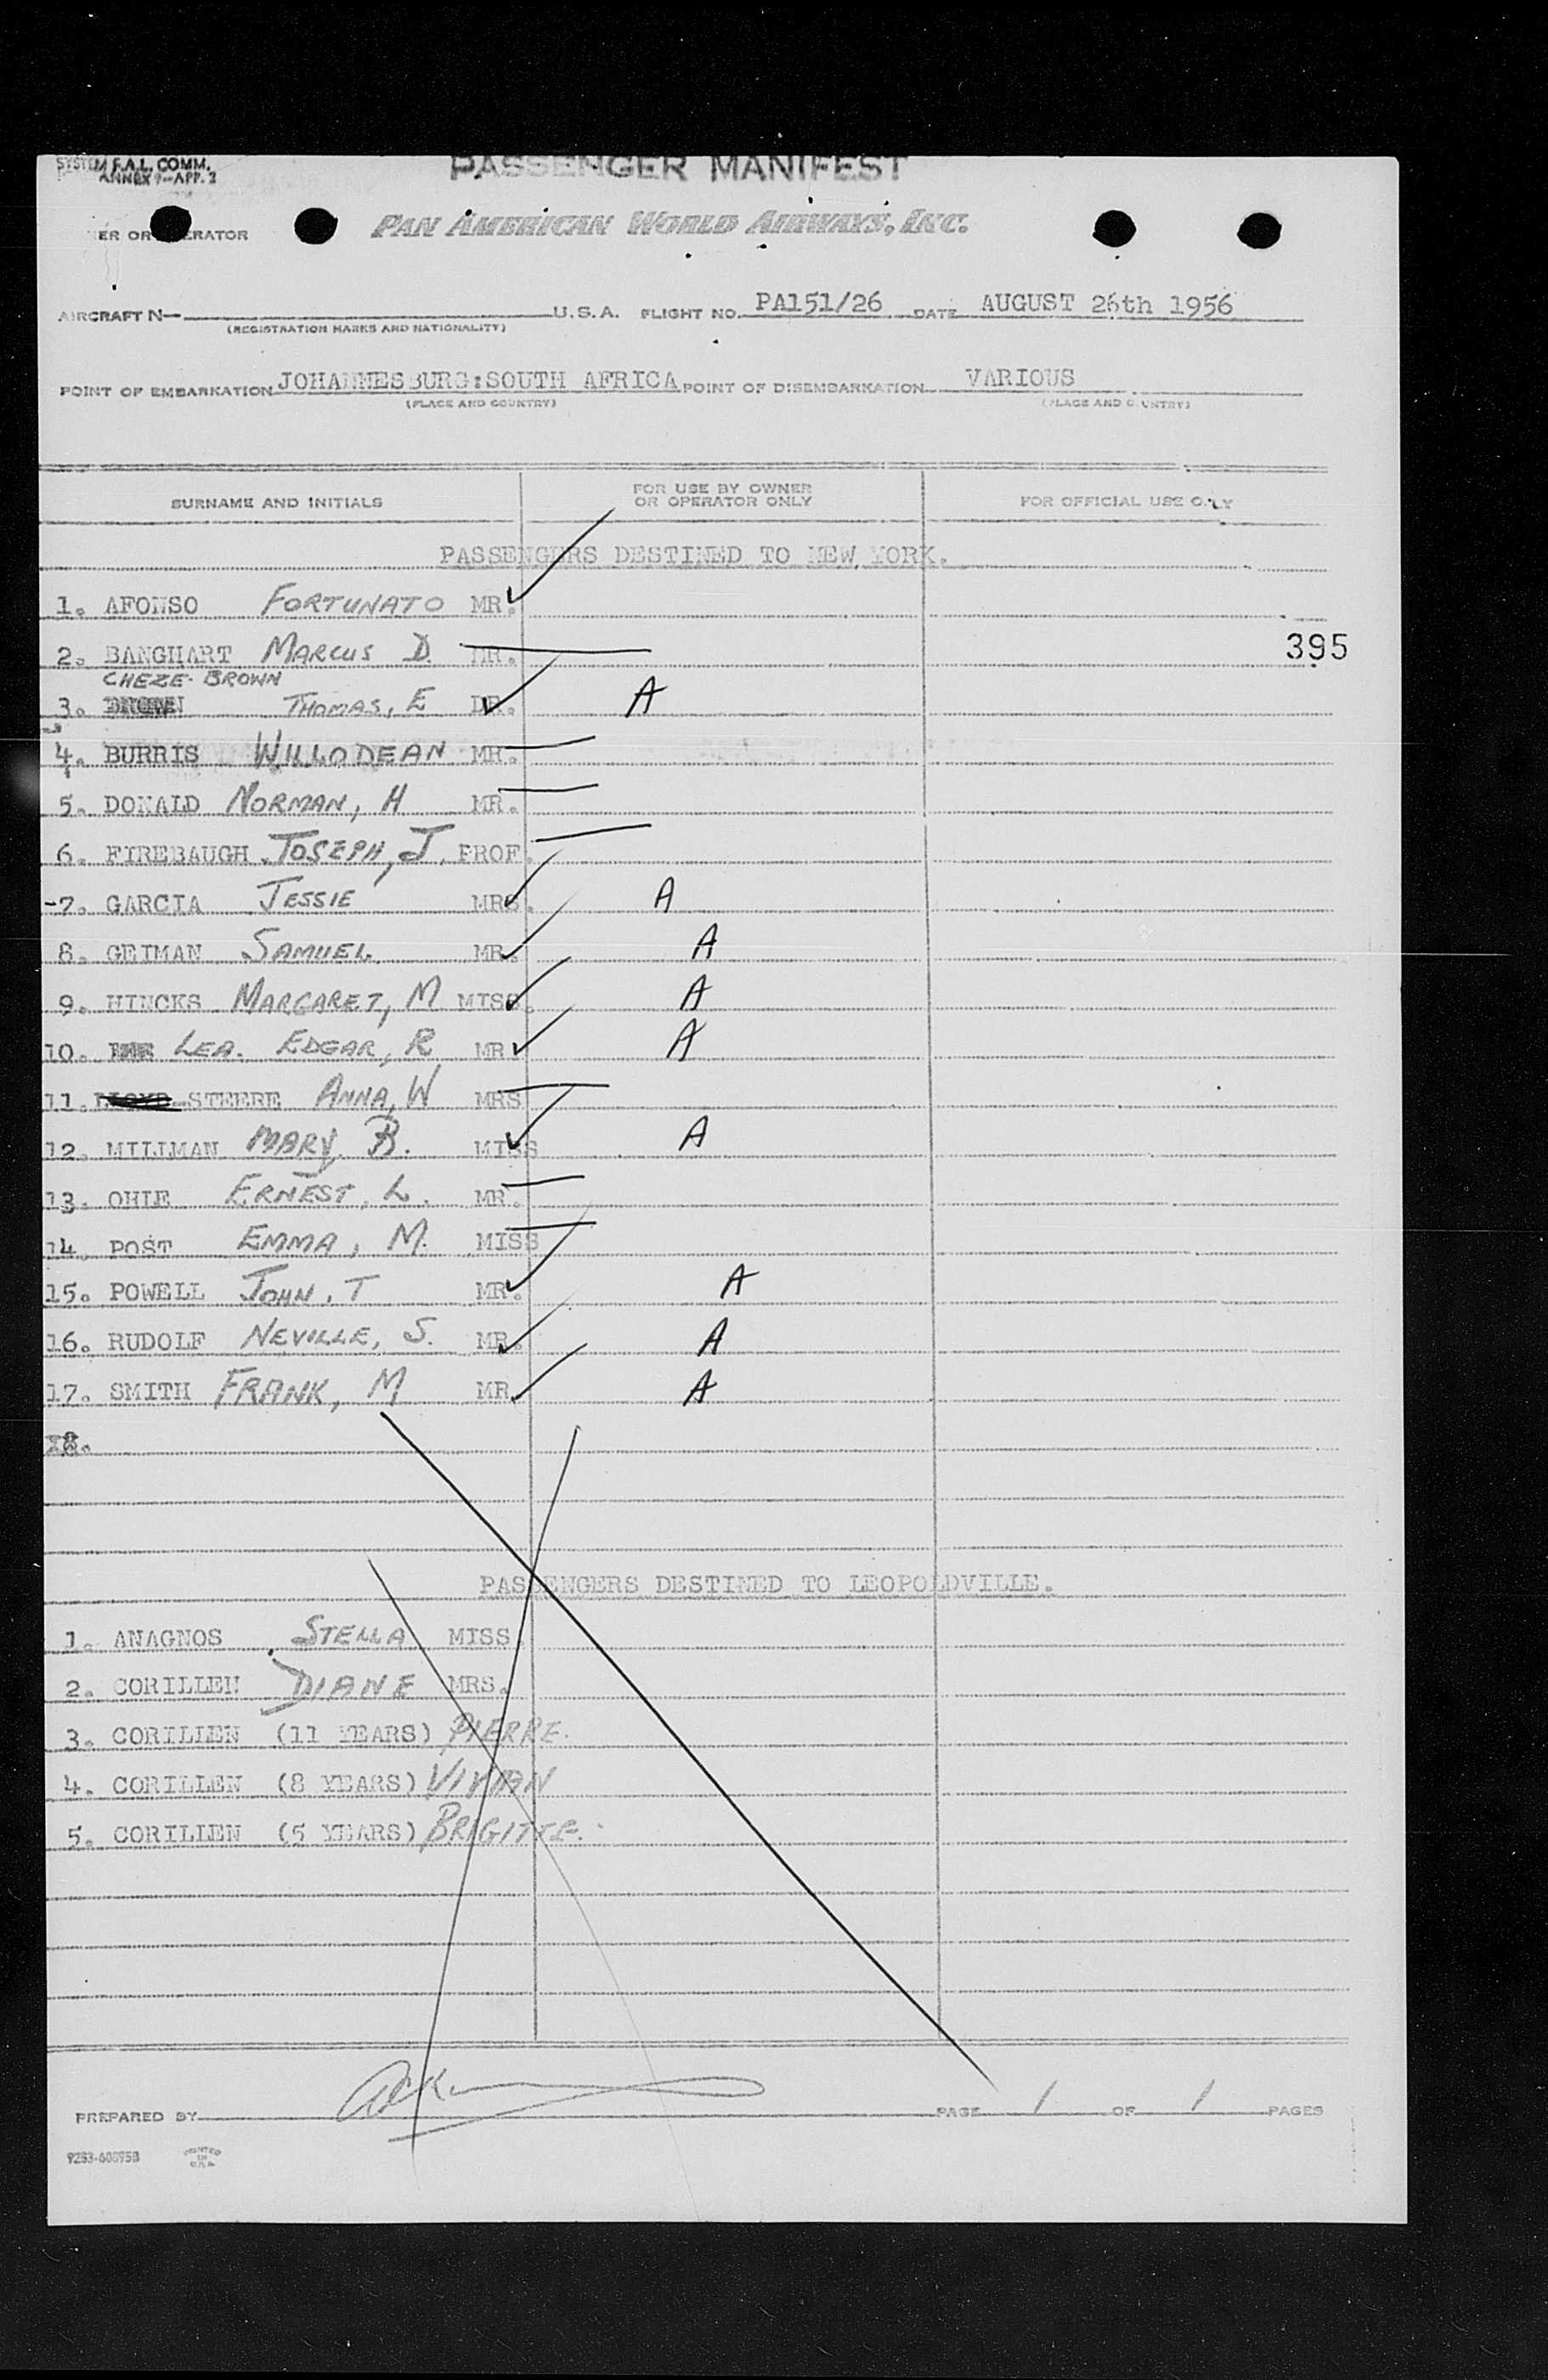 SYSTEM F.A.L. COMM.
ANNEX 9-APP. 2
PASSENGER MANIFEST
ER OR ERATOR
PAN AMERICAN WORLD AIRWAYS, INC.
AIRCRAFT N- U.S.A. FLIGHT NO. PA151/26 DATE AUGUST 26th 1956
(REGISTRATION MARKS AND NATIONALITY)
POINT OF EMBARKATION JOHANNESBURG:SOUTH AFRICA POINT OF DISEMBARKATION VARIOUS
(PLACE AND COUNTRY) (PLACE AND C UNTRY)
SURNAME AND INITIALS FOR USE BY OWNER OR OPERATOR ONLY FOR OFFICIAL USE ONLY
PASSENGERS DESTINED TO NEW YORK.
1. AFONSO FORTUNATO MR.
2. BANGHART MARCUS D. DR. 395
CHEZE-BROWN
3. BROWN THOMAS, E DR. A
4. BURRIS WILLODEAN MR.
5. DONALD NORMAN, H MR.
6. FIREBAUGH JOSEPH, J. PROF.
-7. GARCIA JESSIE MRS. A
8. GEIMAN SAMUEL MR. A
9. HINCKS MARGARET, M MISS. A
10. LEA. EDGAR, R MR A
11. LLOYD-STEERE ANNA, W MRS
12. MILLMAN MARY B. MISS A
13. OHLE ERNEST, L. MR.
14. POST EMMA, M. MISS
15. POWELL JOHN, T MR. A
16. RUDOLF NEVILLE, S. MR. A
17. SMITH FRANK, M MR A
18.
PASSENGERS DESTINED TO LEOPOLDVILLE.
1. ANAGNOS STELLA MISS
2. CORILLEN DIANE MRS.
3. CORILLEN (11 YEARS) PIERRE.
4. CORILLEN (8 YEARS) VIVIAN
5. CORILLEN (5 YEARS) BRIGITTE.
PREPARED BY PAGE 1 OF 1 PAGES
PRINTED IN U.S.A.